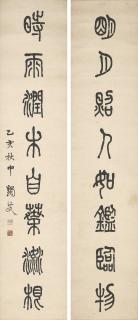 明月照人如鑑臨物
時雨潤木自葉流根
乙亥秋中